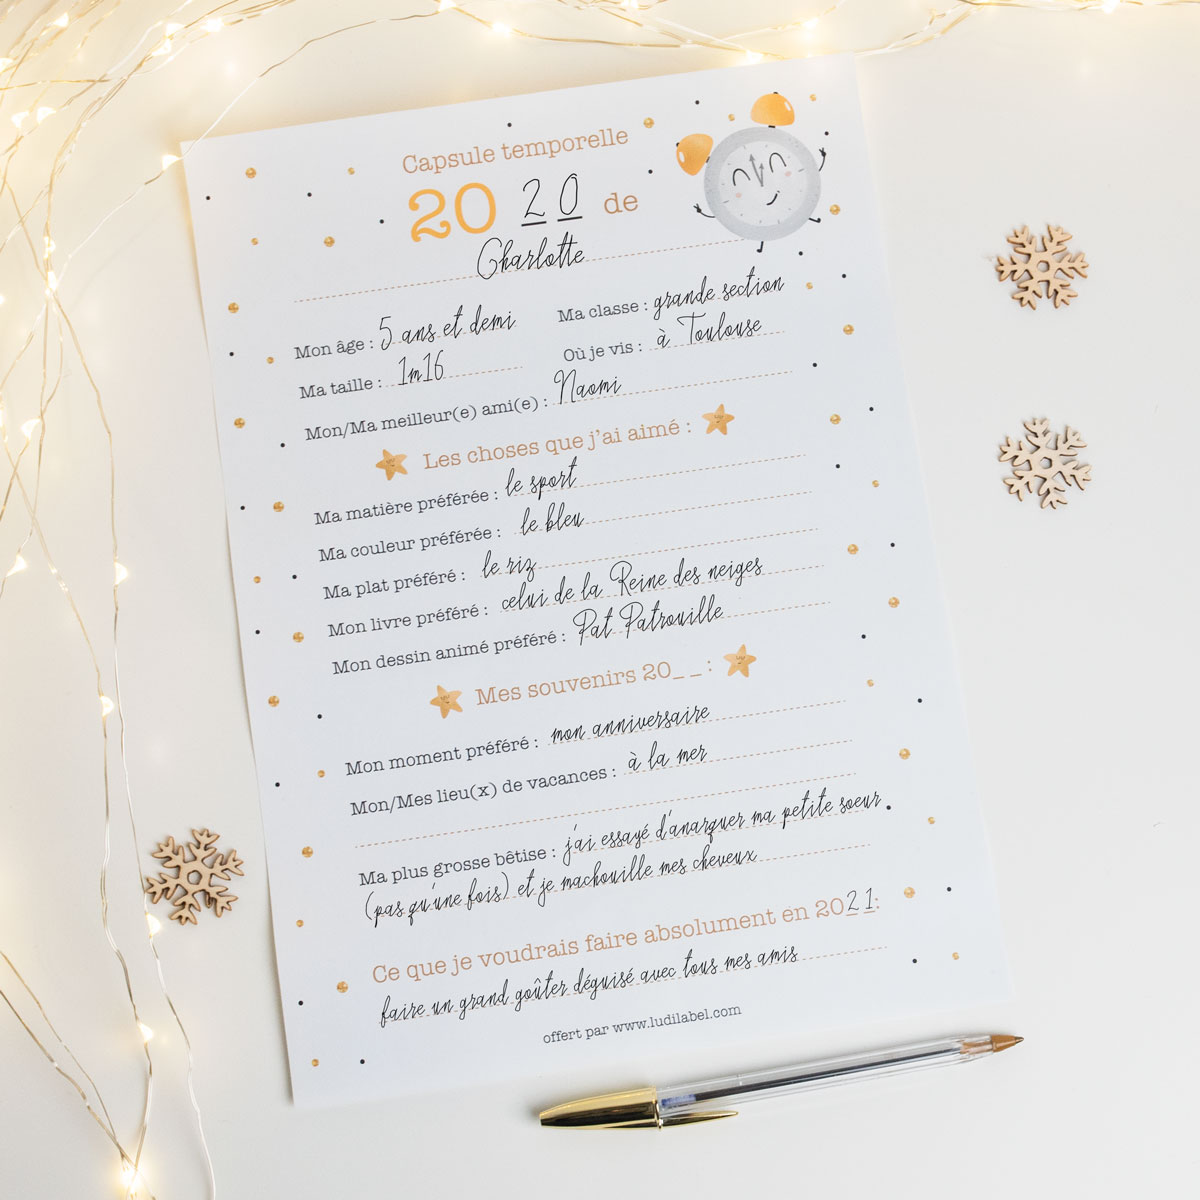 Capsule temporelle
20 20 de
Charlotte
Mon âge : 5 ans et demi
Ma classe : grande section
Ma taille : 1m16
Où je vis : à Toulouse
Mon/Ma meilleur(e) ami(e) : Naomi
Les choses que j'ai aimé :
Ma matière préférée : le sport
Ma couleur préférée : le bleu
Ma plat préféré : le riz
Mon livre préféré : celui de la Reine des neiges
Mon dessin animé préféré : Pat Patrouille
Mes souvenirs 20_ _ :
Mon moment préféré : mon anniversaire
Mon/Mes lieu(x) de vacances : à la mer
Ma plus grosse bêtise : j'ai essayé d'anarquer ma petite soeur
(pas qu'une fois) et je machouille mes cheveux
Ce que je voudrais faire absolument en 2021:
faire un grand goûter déguisé avec tous mes amis
offert par www.ludilabel.com